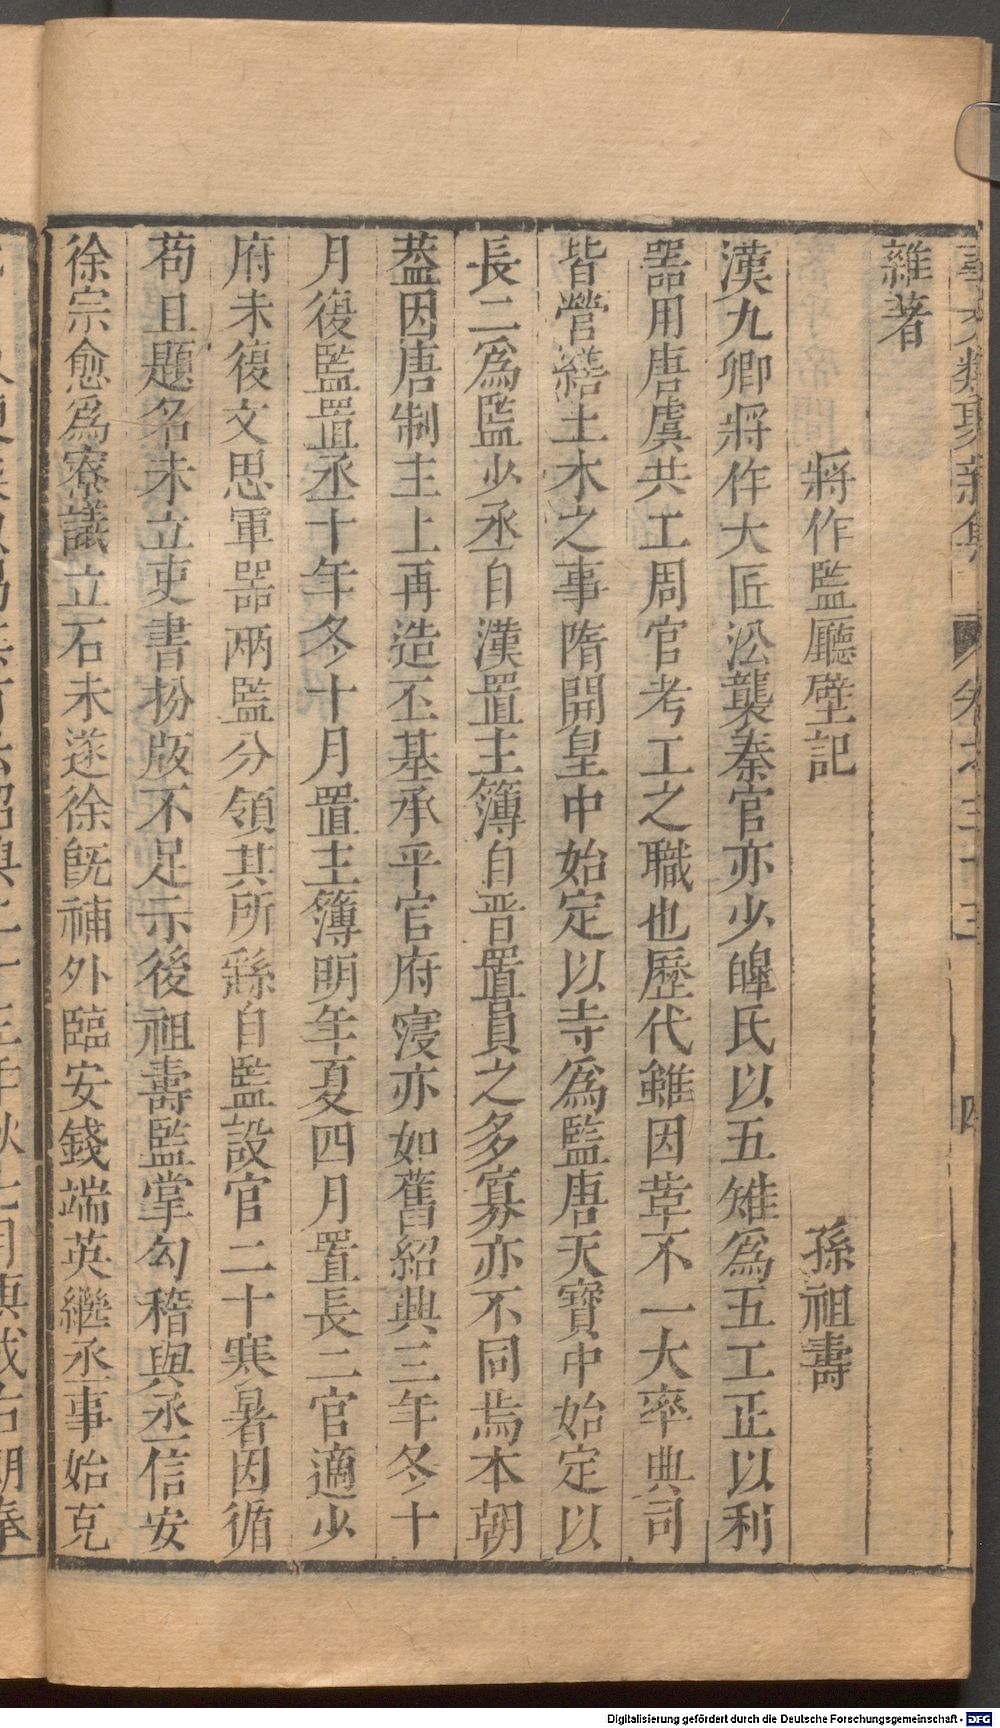 事文類聚新集 卷之三十三 四
雜著
將作監廳壁記 孫祖壽
漢九卿將作大匠㳂襲秦官亦少皥氏以五雉爲五工正以利
噐用唐虞共工周官考工之職也歷代雖因革不一大率典司
皆營繕土木之事隋開皇中始定以寺爲監唐天寳中始定以
長二爲監少丞自漢置主簿自晋置員之多寡亦不同焉本朝
葢因唐制主上再造丕基承平官府寖亦如舊紹興三年冬十
月復監置丞十年冬十月置主簿明年夏四月置長二官適少
府未復文思軍噐兩監分領其所繇自監設官二十寒暑因循
苟且題名未立吏書扮版不足示後祖壽監掌勾稽與丞信安
徐宗愈爲寮議立石未遂徐旣補外臨安錢端英繼丞事始克